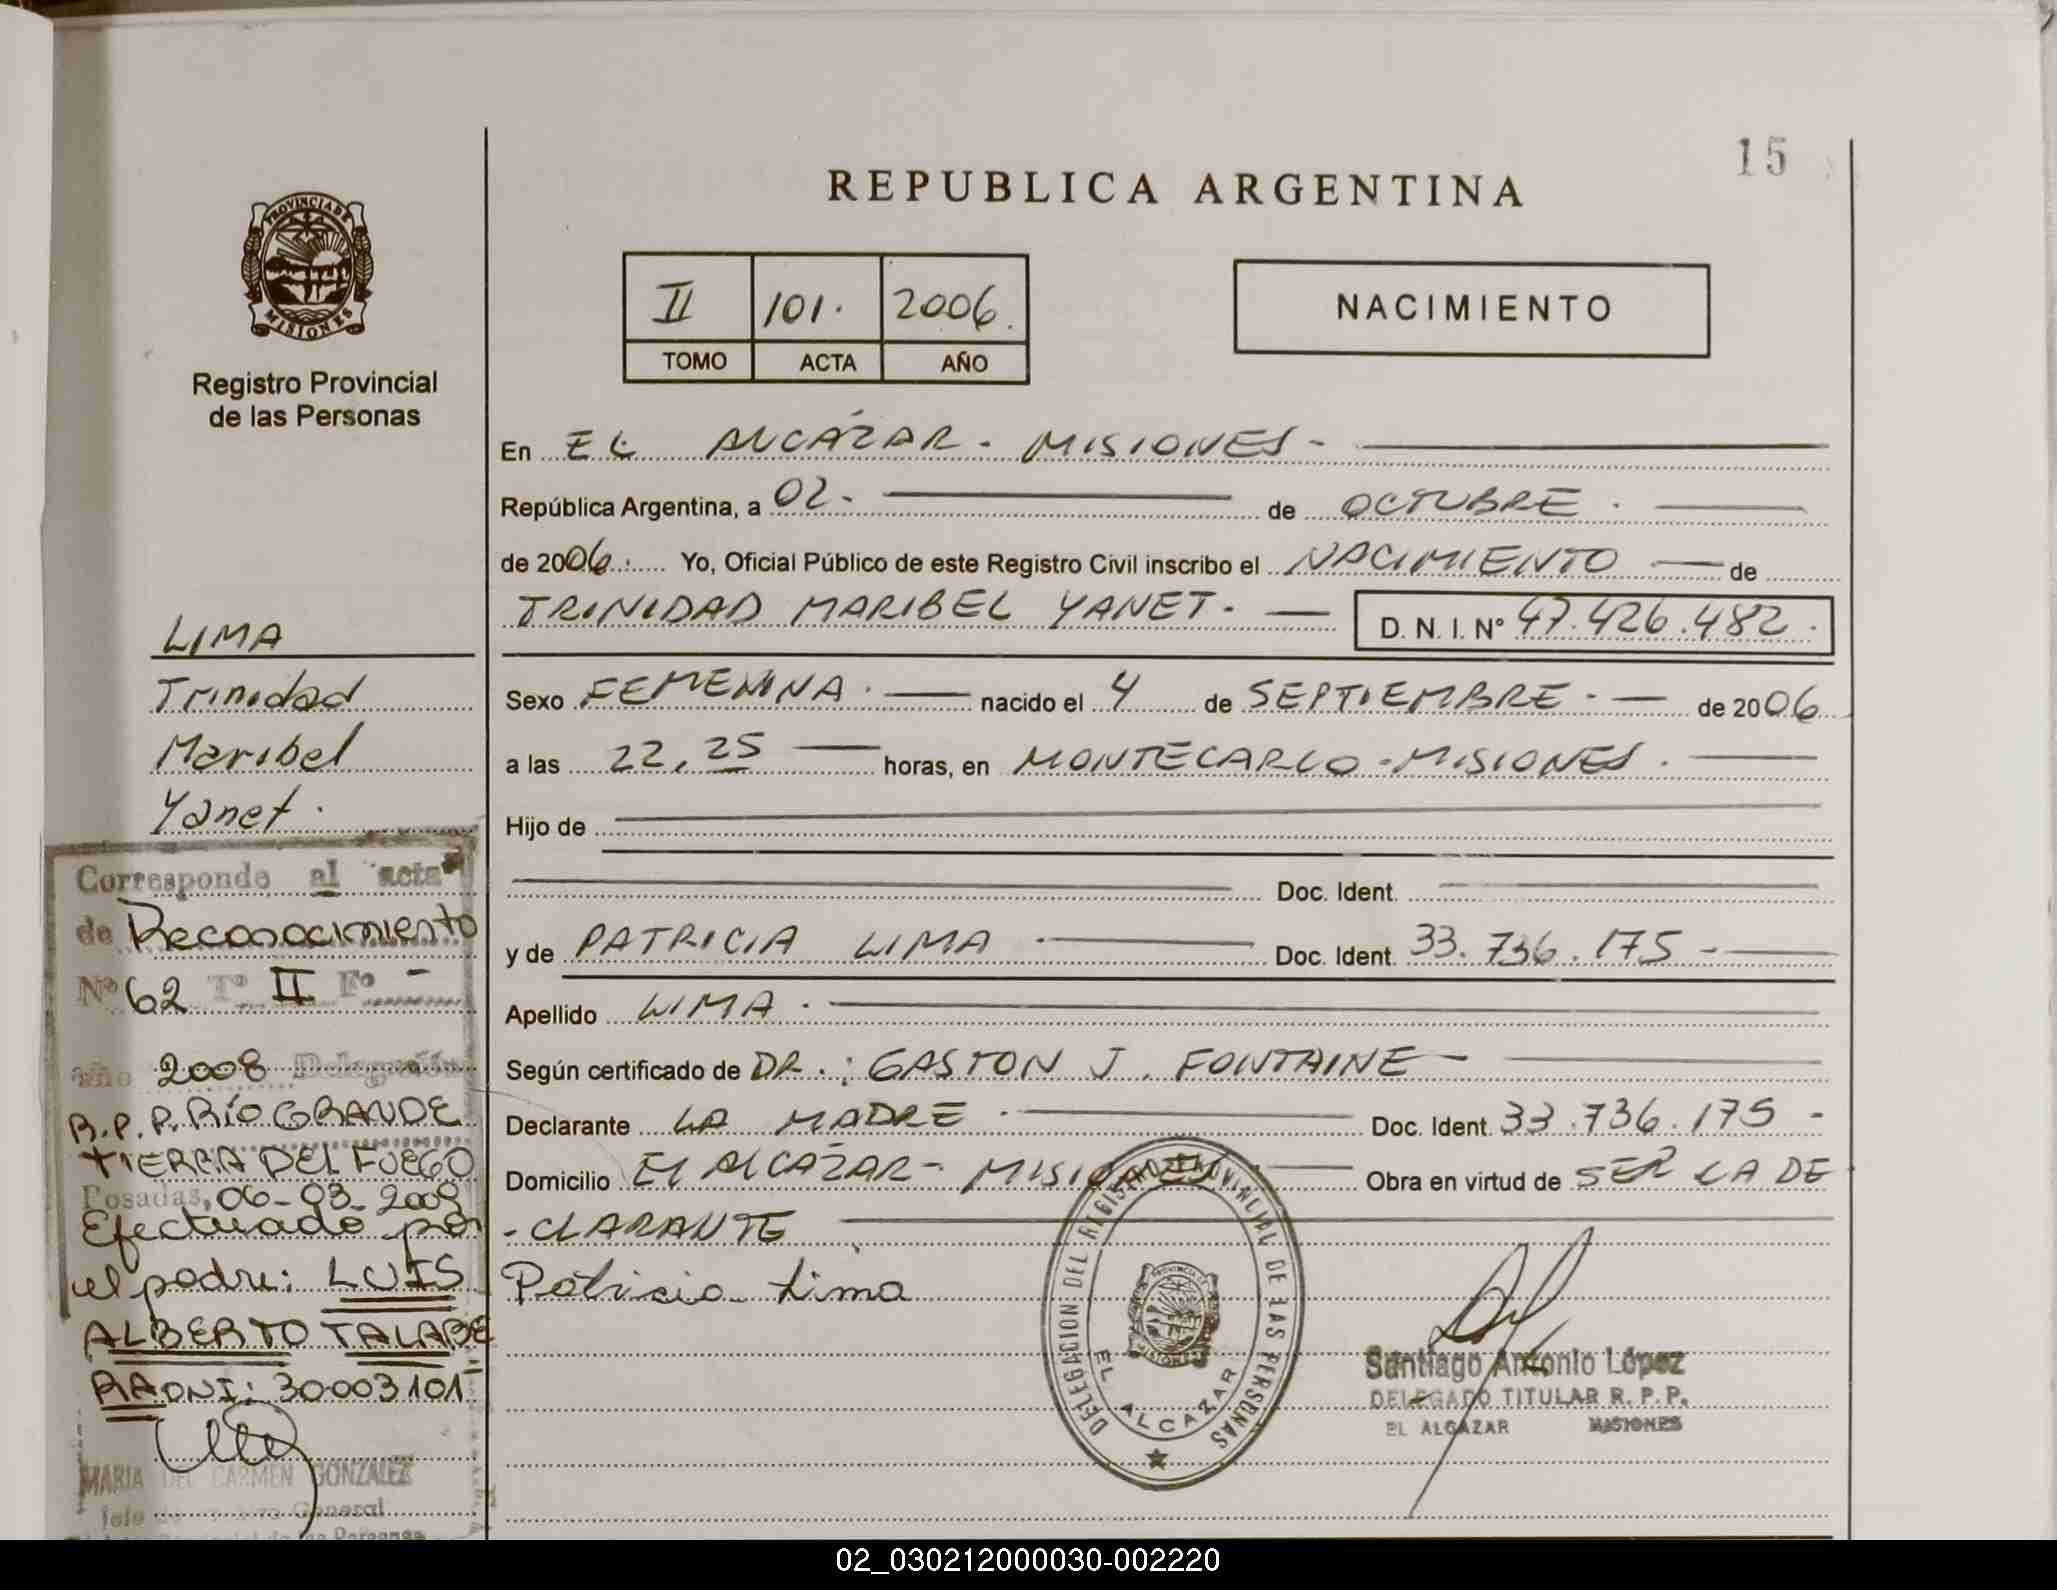 15
REPUBLICA ARGENTINA
PROVINCIA DE
MISIONES
Registro Provincial
de las Personas
II 101. 2006.
TOMO ACTA AÑO
NACIMIENTO
En EL ALCÁZAR - MISIONES -
República Argentina, a 02 - de OCTUBRE .
de 2006. Yo, Oficial Público de este Registro Civil inscribo el NACIMIENTO de
TRINIDAD MARIBEL YANET. D. N. I. N° 47.426.482.
Sexo FEMENINA. nacido el 4 de SEPTIEMBRE. de 2006
a las 22,25 horas, en MONTECARLO - MISIONES.
Hijo de
Doc. Ident.
y de PATRICIA LIMA Doc. Ident. 33.736.175 -
Apellido LIMA.
Según certificado de DR.: GASTON J. FONTAINE -
Declarante LA MADRE. Doc. Ident. 33.736.175 -
Domicilio El ALCAZAR - MISIONES Obra en virtud de SER LA DE
- CLARANTE
Patricia Lima
LIMA
Trinidad
Maribel
Yanet.
Corresponde al acta
de Reconocimiento
N° 62 T° II F° -
año 2008 Delegación
R.P.P. RÍO GRANDE
TIERRA DEL FUEGO
Posadas, 06-03-2009
Efectuado por
el padre: LUIS
ALBERTO TALABE
RA DNI: 30003101
MARIA DEL CARMEN GONZALEZ
General
de las Personas
DELEGACION DEL REGISTRO PROVINCIAL DE LAS PERSONAS
PROVINCIA DE
MISIONES
EL ALCAZAR
Santiago Antonio López
DELEGADO TITULAR R. P. P.
EL ALCAZAR MISIONES
02_030212000030-002220